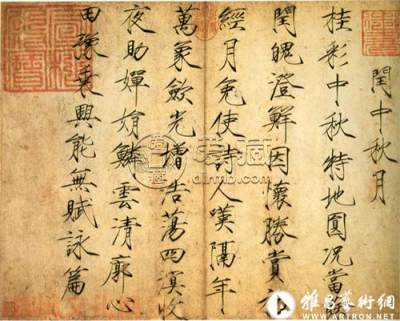 閏中秋月
桂彩中秋特地圓况當餘
閏魄澄鮮因懷勝賞初
經月免使詩人嘆隔年
萬象歛光增浩蕩四溟收
夜助嬋娟鱗雲清廓心
田豫乘興能無賦詠篇
雅昌藝術網
WWW.ARTRON.NET